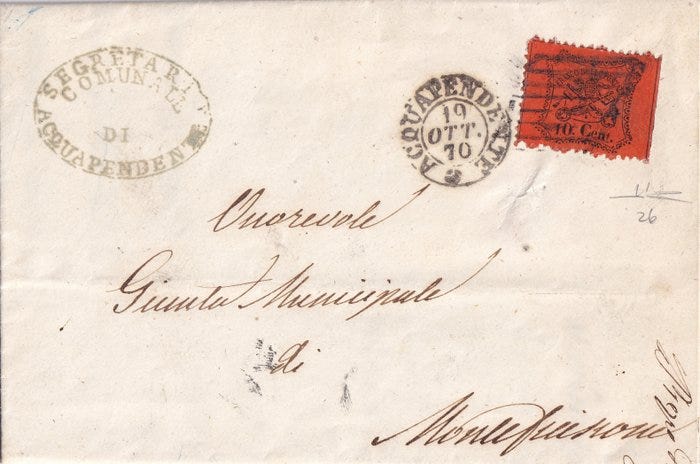 SEGRETARI
COMUNALE
DI
ACQUAPENDENTE
ACQUAPENDENTE
19
OTT.
70
10 Cent.
11
26
Onorevole
Giunta Municipale
di
Montefiascone